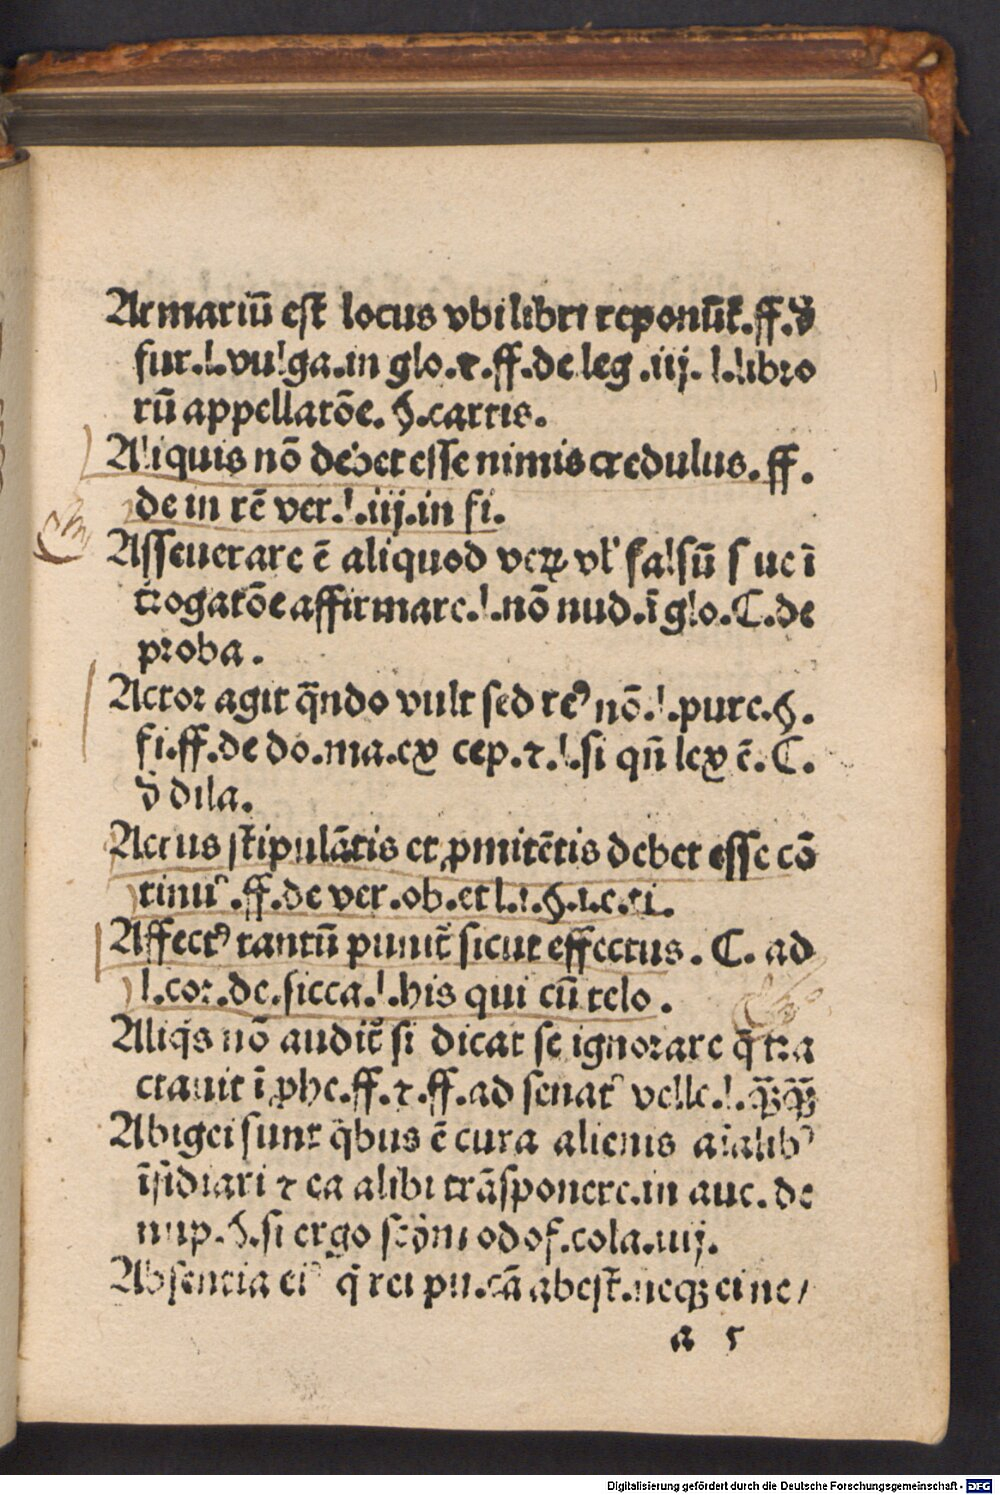 Armariū est locus vbi libri reponūt᷑.ff.ꝺ̄
fur.l.vulga.in glo.⁊.ff.de leg.iij.l.libro
rū appellatōe.§.cartis.
Aliquis nō debet esse nimis credulus.ff.
de in rē ver.l.iij.in fi.
Asseuerare ē aliquod veꝝ vl' falsū s ue ī
trogatōe affirmare.l.nō nud.ī glo.C.de
proba.
Actor agit q̄ndo vult sed reꝰ nō.l.pure.§.
fi.ff.de do.ma.ex cep.⁊.l.si qn̄ lex ē.C.
ꝺ̄ dila.
Actus stipulātis et ꝓmitētis debet esse cō
tinuꝰ.ff.de ver.ob.et l.i.§.i.e.ti.
Affectꝰ tantū punit᷑ sicut effectus. C. ad
l.cor.de.sicca.l.his qui cū telo.
Aliq̇s nō audit᷑ si dicat se ignorare q̄ tra
ctauit ī ꝓhe.ff.⁊.ff.ad senatꝰ velle.l.qꝫ̄qꝫ̄
Abigei sunt q̇bus ē cura alienis aīalibꝰ
īsīdiari ⁊ ea alibi trāsponere.in auc.de
nup.§.si ergo
cola.iiij.
Absentia eiꝰ q̇ rei pu.cā abest.neqꝫ ei ne/
a 5
Digitalisierung gefördert durch die Deutsche Forschungsgemeinschaft - DFG